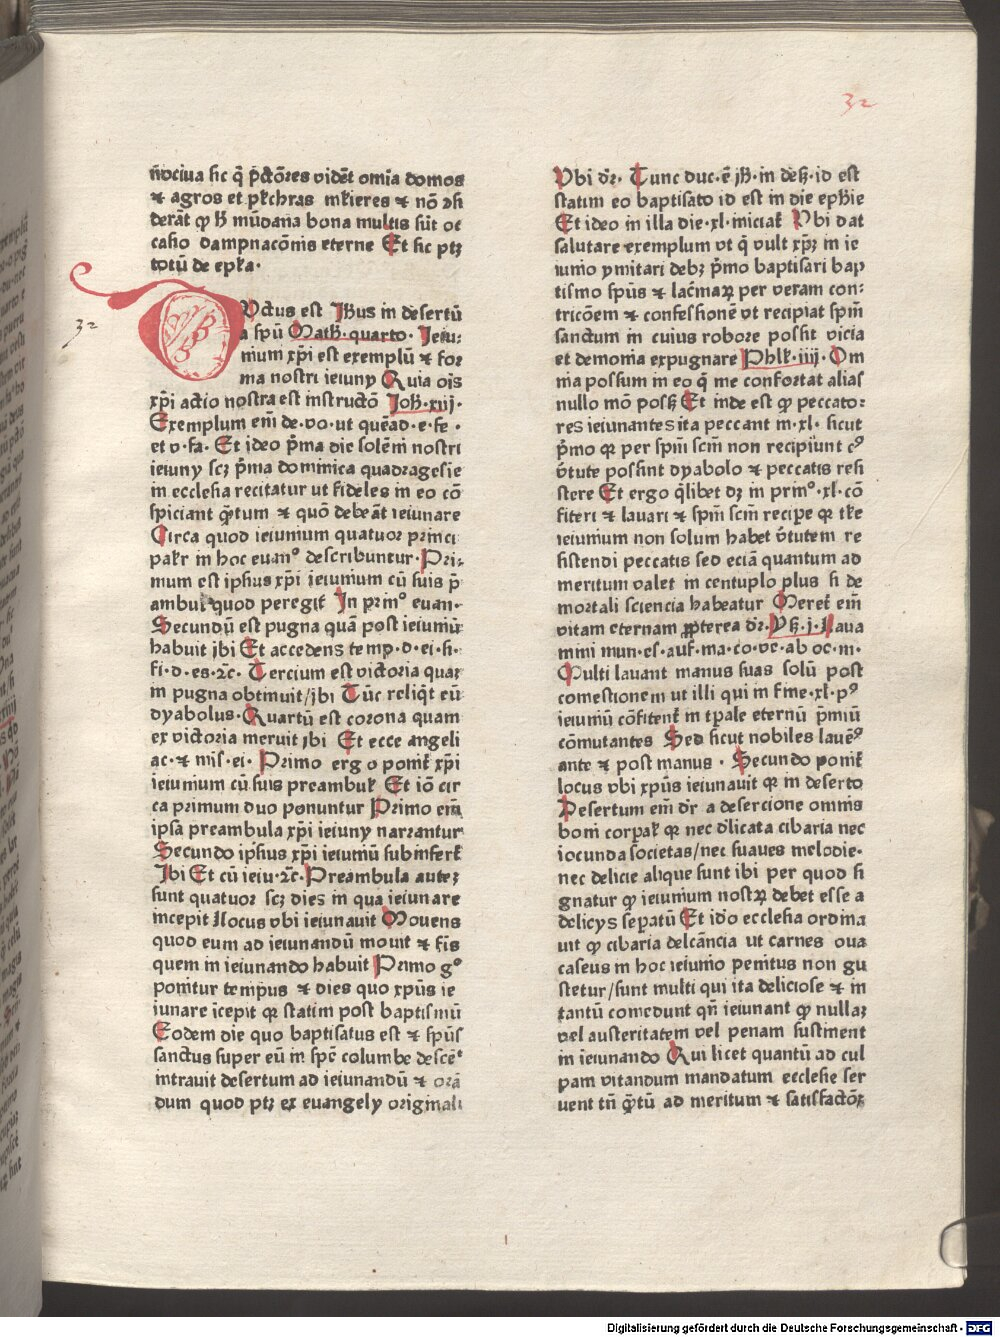 32
n̄ociua sic q̄ p̄ctōres vidēt omīa domos
⁊ agros et pl̄chras ml̄ieres ⁊ nō ↄsi
derāt ꝙ h̄ mūdana bona multis sūt oc
casio dampnacōnis eterne Et sic ptꝫ
totū de epl̄a·
32
Uctus est Jh̄us in desertū
a spū Math̄·quarto· Jeiu:
nium xp̄i est exemplū ⁊ for
ma nostri ieiuny Quia oīs
xp̄i actio nostra est instructō Joh̄·xiij·
Exemplum eni̅ de·do·ut quēad·e·fe·
et v·fa· Et ideo p̄ma die solēni̅ nostri
ieiuny scꝫ p̄ma dominica quadragesie
in ecclesia recitatur ut fideles in eo cō
spiciant q̄tum ⁊ quō debeāt ieiunare
Circa quod ieiunium quatuor princi
pal̄r in hoc euanº describuntur·Pri:
mum est ipsius xp̄i ieiunium cū suis p̄
ambul̄ quod peregit̄ In primº euan·
Secundū est pugna quā post ieiuniū
habuit ibi Et accedens temp·d·ei·si·
fi·d·es·⁊c̄· Tercium est victoria quaꝫ
in pugna obtinuit/ibi Tūc reliq̄t eū
dyabolus·Quartū est corona quam
ex victoria meruit ibi Et ecce angeli
ac·⁊ mīs·ei· Primo ergo ponit̄ xp̄i
ieiunium cū suis preambul̄ Et iō cir
ca primum duo ponuntur Primo eni̅
ipsa preambula xp̄i ieiuny narrantur
Secundo ipsius xp̄i ieiuniū subinfert̄
Ibi Et cū ieiu·⁊c̄·Preambula auteꝫ
sunt quatuor scꝫ dies in qua ieiunare
incepit Locus vbi ieiunauit Mouens
quod eum ad ieiunandū mouit ⁊ fīs
quem in ieiunando habuit Primo gº
ponitur tempus ⁊ dies quo xp̄us ie
iunare īcepit qꝛ statim post baptismū
Eodem die quo baptisatus est ⁊ sp̄us
sanctus super eū in spē columbe descē⁹
intrauit desertum ad ieiunandū ⁊ orā
dum quod ptꝫ ex euangely originali
Vbi dr̄· Tunc duc·ē jh̄·in deß·id est
statim eo baptisato id est in die eph̄ie
Et ideo in illa die·xl·iniciat̄ Vbi dat
salutare exemplum ut q̄ vult xp̄ꝫ in ie
iunio ymitari debꝫ p̄mo baptisari bap
tismo sp̄us ⁊ lac̄maꝝ per veram con:
tricōem ⁊ confessionē ut recipiat sp̄m
sanctum in cuius robore possit vicia
et demonia expugnare Phl̄·iiij·Om
nia possum in eo q̄ me confortat alias
nullo mō posß Et inde est ꝙ peccato:
res ieiunantes ita peccant in·xl· sicut
p̄mo qꝛ per sp̄m scm̄ non recipiunt c⁹
v̄tute possint dyabolo ⁊ peccatis resi
stere Et ergo q̄libet dꝫ in prin̄º·xl·cō
fiteri ⁊ lauari ⁊ sp̄m scm̄ recipe qꝛ tl̄e
ieiunium non solum habet v̄tutem re
sistendi peccatis sed eciā quantum ad
meritum valet in centuplo plus si de
mortali sciencia habeatur Meret̄ eni̅
vitam eternam ꝓpterea dr̄·Yß·j·Laua
mini mun·es·auf·ma·co·ve·ab oc·m·
Multi lauant manus suas solū post
comestionem ut illi qui in fine·xl·p⁹
ieiuniū cōfitent̄ in tp̄ale eternū p̄miū
cōmutantes Sed sicut nobiles lauē⁹
ante ⁊ post manus · Secundo ponit̄
locus vbi xp̄us ieiunauit qꝛ in deserto
Desertum eni̅ dr̄ a desercione omnis
boni corpal̄ qꝛ nec d̄licata cibaria nec
iocunda societas/nec suaues melodie·
nec delicie alique sunt ibi per quod si
gnatur ꝙ ieiunium nostꝝ debet esse a
delicys sepatū Et id̄o ecclesia ordina
uit ꝙ cibaria delcāncia ut carnes oua
caseus in hoc ieiunio penitus non gu
stetur/sunt multi qui ita deliciose ⁊ in
tantū comedunt qn̄ ieiunant ꝙ nullaꝫ
vel austeritatem vel penam sustinent
in ieiunando Qui licet quantū ad cul
pam vitandum mandatum ecclesie ser
uent tn̄ q̄tū ad meritum ⁊ satisfactōꝫ
Digitalisierung gefördert durch die Deutsche Forschungsgemeinschaft - DFG